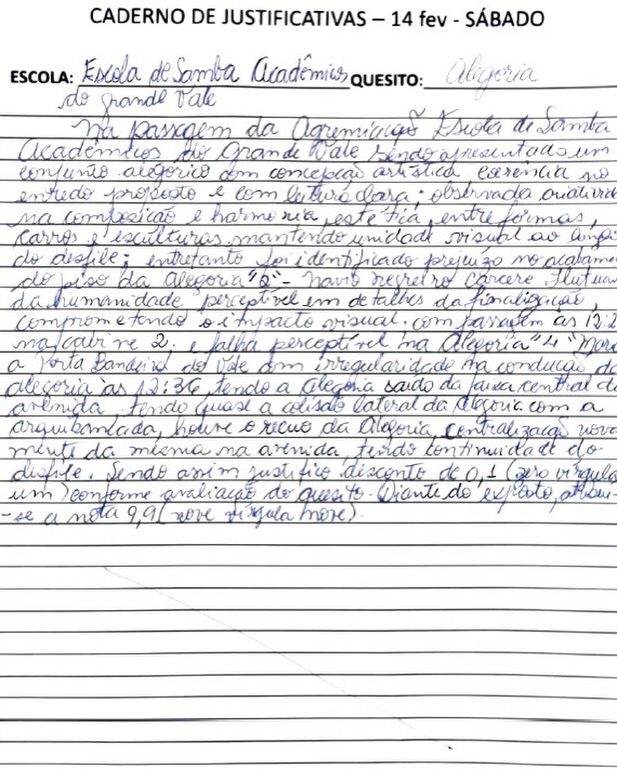 CADERNO DE JUSTIFICATIVAS – 14 fev - SÁBADO
ESCOLA: Escola de Samba Acadêmicos QUESITO: Alegoria
do grande Vale
Na passagem da Agremiação Escola de Samba
Acadêmicos do Grande Vale sendo apresentado um
conjunto alegorico com concepção artística, coerencia no
enredo proposto e com leitura clara; observada criativid
na composição e harmonia estetica entre formas,
carros e esculturas mantendo unidade visual ao longo
do desfile; entretanto foi identificado prejuizo no acabame
do piso da Alegoria "2" - navio negreiro carcere flutuan
da humanidade perceptível em detalhes da finalização,
comprometendo o impacto visual. com passagem às 12:2
na cabine 2; e falha perceptível na Alegoria "4"
a Porta Bandeira do Vale com irregularidade na condução da
alegoria às 12:36, tendo a alegoria saido da faixa central da
avenida. tendo quase a colisão lateral da alegoria com a
arquibancada, houve o recuo da Alegoria, centralização nova
mente da mesma na avenida, tendo continuidade do
desfile. Sendo assim justifico desconto de 0,1 (zero virgula
um) conforme avaliação do quesito. Diante do exposto, atribui-
-se a nota 9,9 (nove virgula nove).